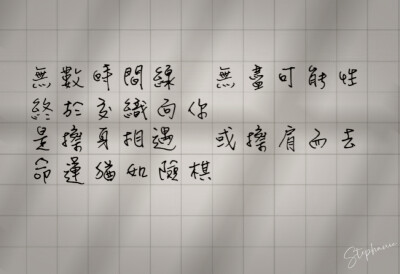 無數時間線 無盡可能性
終於交織向你
是擦身相遇 或擦肩而去
命運猶如險棋
Stephanie